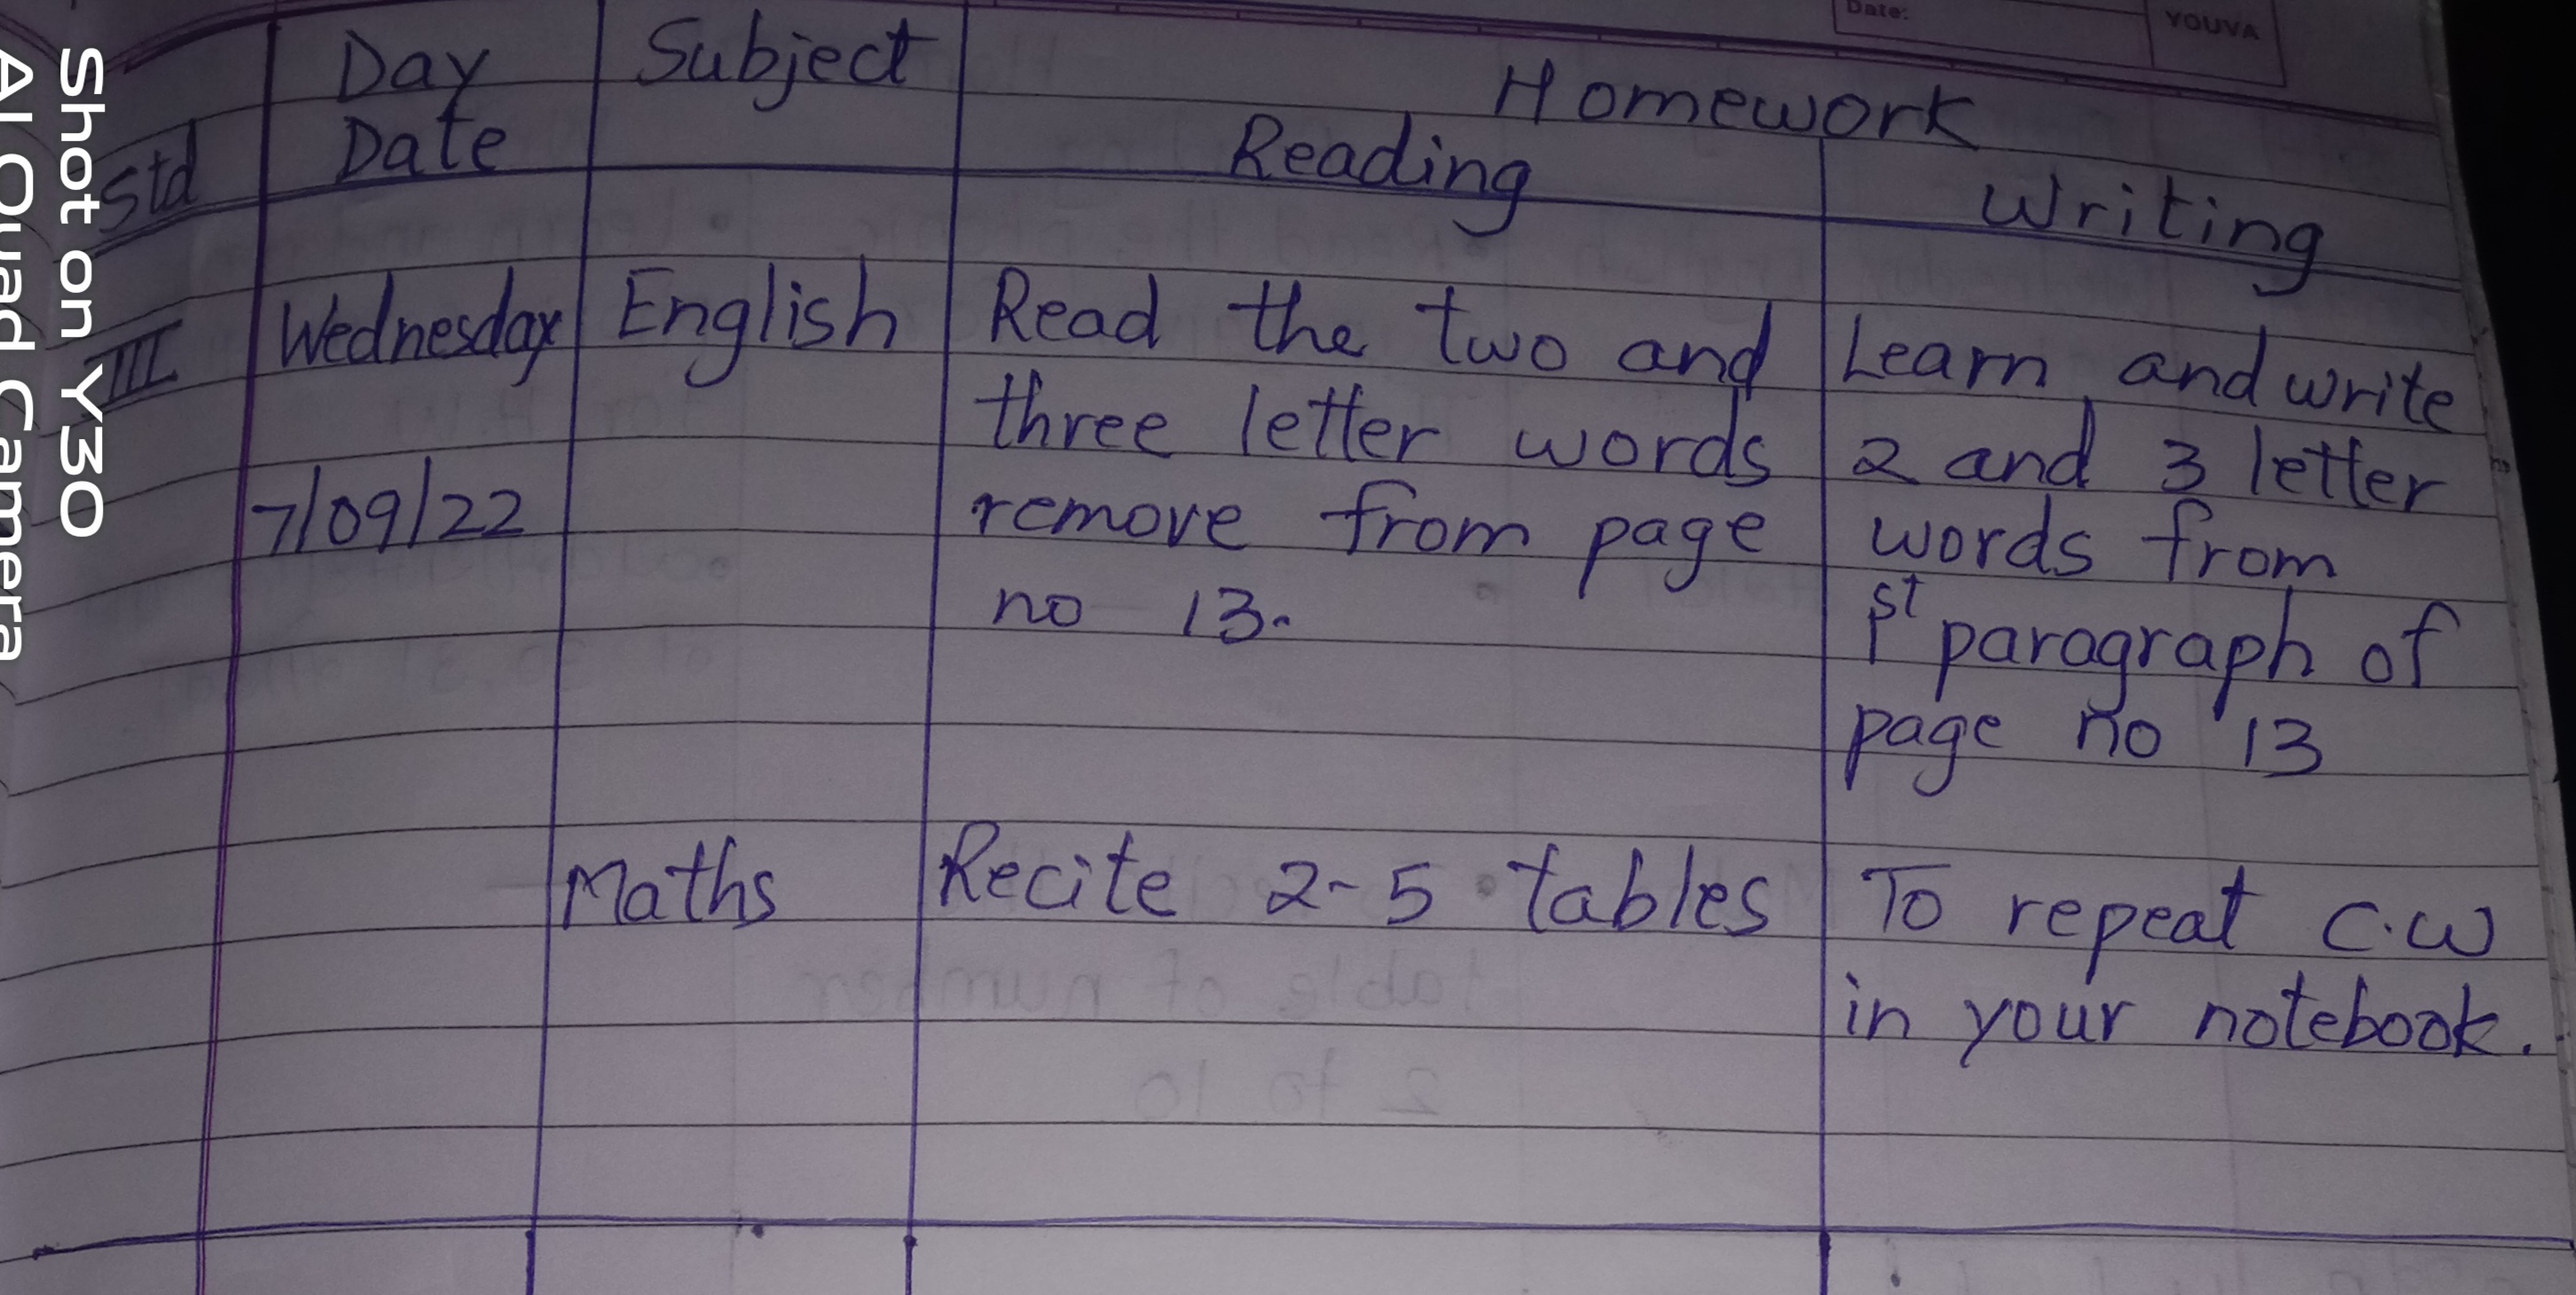 Date:
YOUVA
Std
Day
Date
Subject
Homework
Reading
Writing
III
Wednesday
7/09/22
English
Read the two and
three letter words
remove from page
no 13.
Learn and write
2 and 3 letter
words from
1st paragraph of
page no 13
Maths
Recite 2-5 tables
To repeat C.W
in your notebook.
Shot on Y30
AI Quad Camera